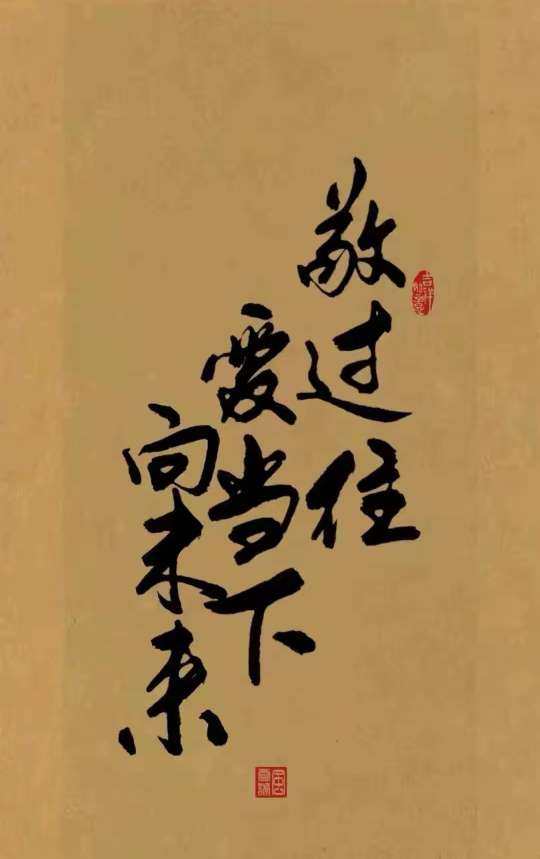 敬过往
爱当下
向未来
吉祥